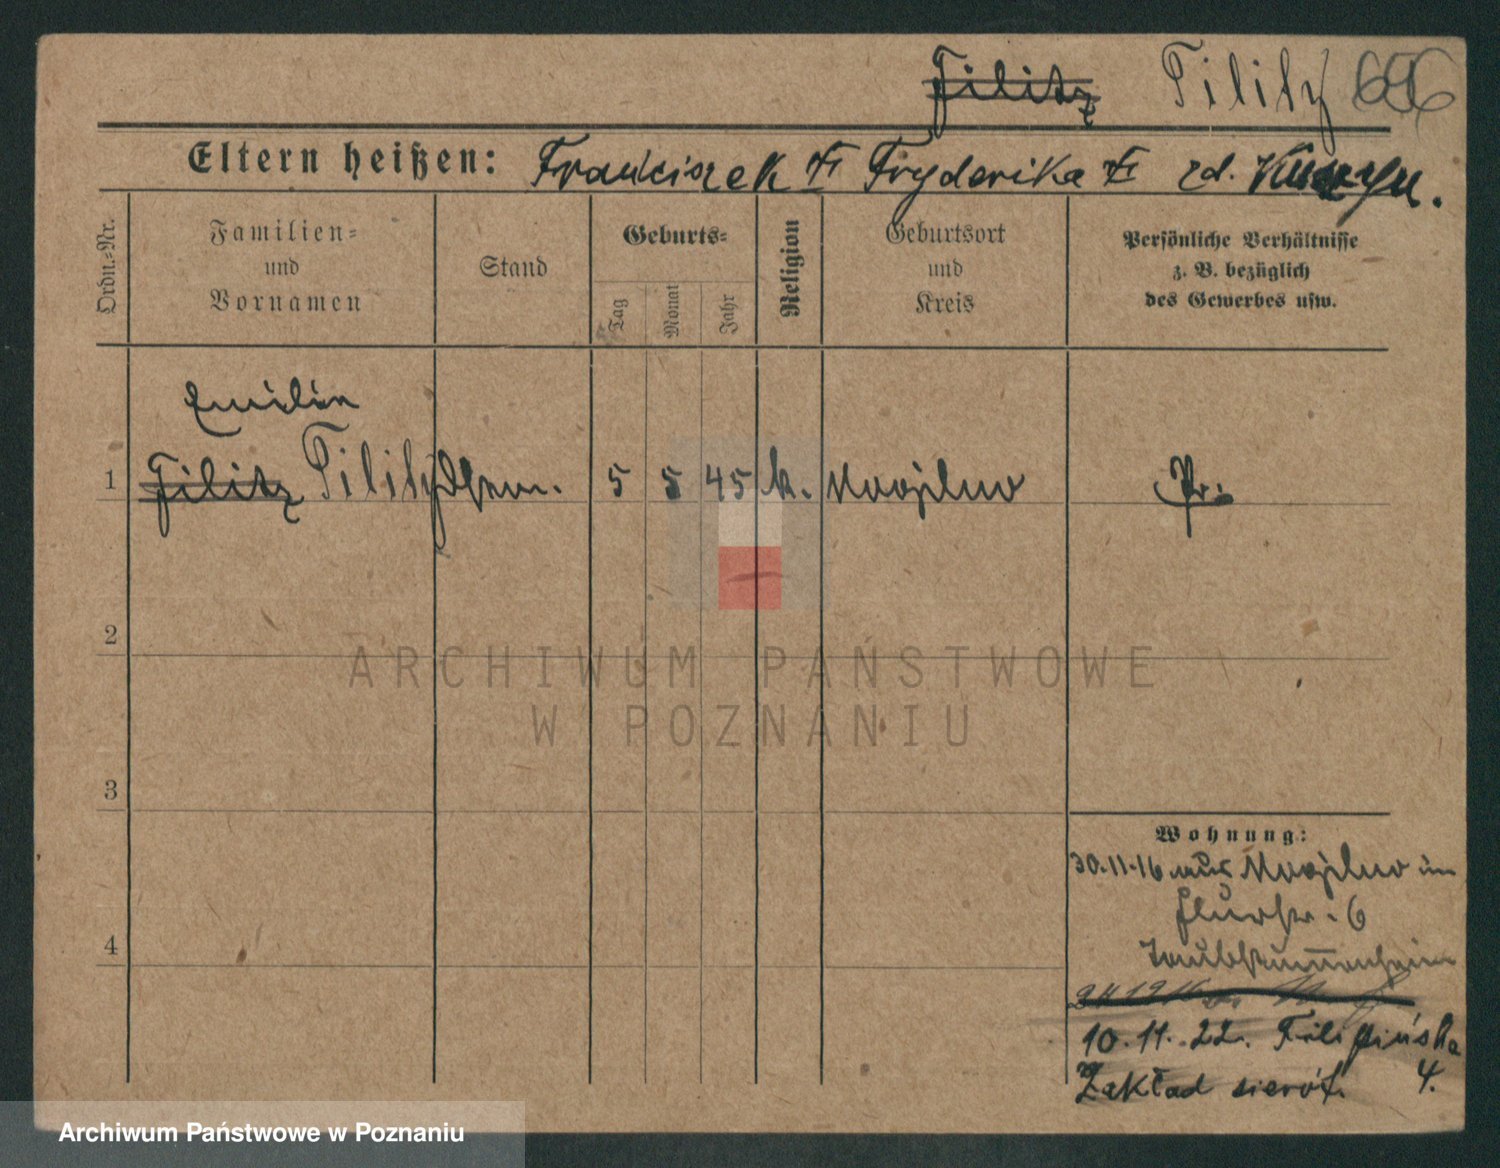 Filitz Tility 696
Eltern heißen: Franciszek Fryderika zd.
Ordn.-Nr.
Familien-
und
Vornamen
Stand
Geburts-
Tag
Monat
Jahr
Religion
Geburtsort
und
Kreis
Persönliche Verhältnisse
z. B. bezüglich
des Gewerbes usw.
Emilin
1 Filitz Tility 5 5 45 k. Mogilno Pr.
2
3
4
Wohnung:
30.11.16 aus Mogilno in
Flurstr. 6
Taubstummenheim
10.11.22. Filipińska
Zakład sierót. 4.
ARCHIWUM PAŃSTWOWE
W POZNANIU
Archiwum Państwowe w Poznaniu